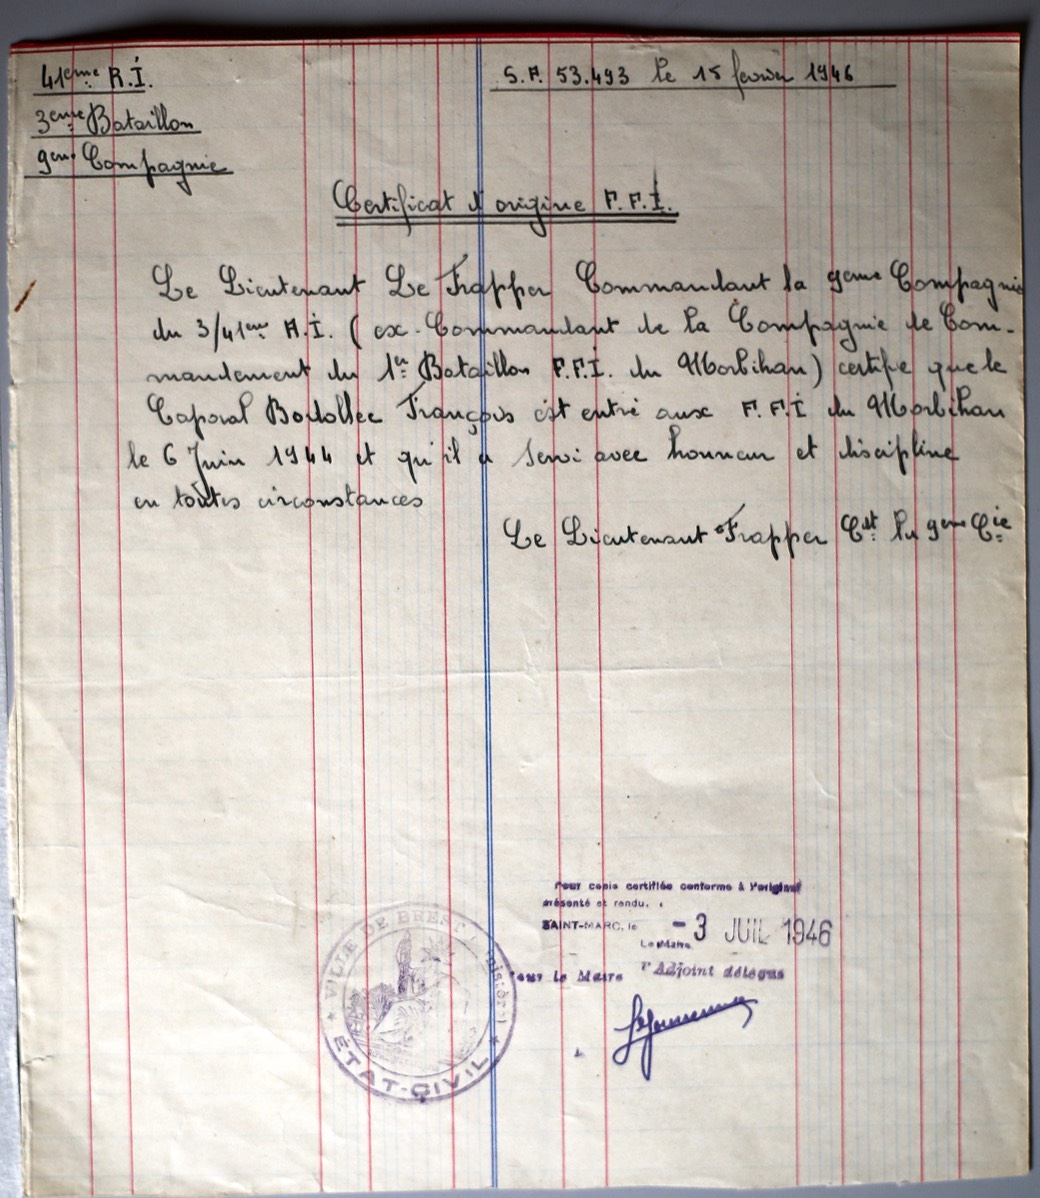 41eme R.I.
S.P. 53.493 le 15 février 1946
3eme Bataillon
9eme Compagnie
Certificat d'origine F.F.I.
Le Lieutenant Le Frapper Commandant la 9eme Compagnie
du 3/41eme R.I. ( ex-Commandant de la Compagnie de Com-
mandement du 1er Bataillon F.F.I. du Morbihan) certifie que le
Caporal Bodollec François est entré aux F.F.I du Morbihan
le 6 Juin 1944 et qu'il a servi avec honneur et discipline
en toutes circonstances
Le Lieutenant Frapper Ct la 9eme Cie
Pour copie certifiée conforme à l'original
présenté et rendu.
SAINT-MARC, le -3 JUIL 1946
Le Maire
Pour le Maire l'Adjoint délégué
VILLE DE BREST (Finistère)
ÉTAT-CIVIL